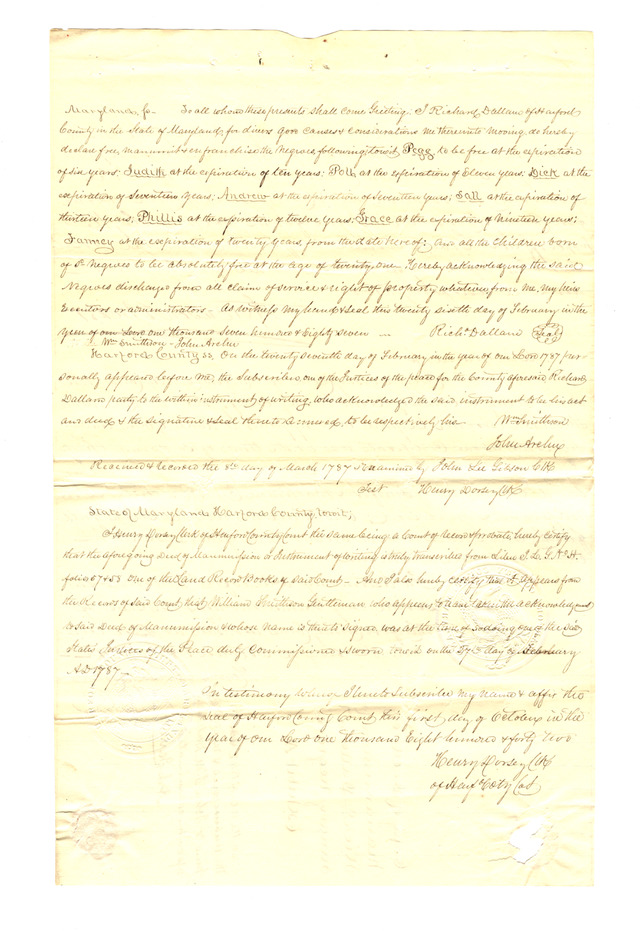 Maryland, ss. To all whom these presents shall come Greeting. I Richard Dallam of Harford
County in the State of Maryland, for divers good causes & considerations me thereunto moving, do hereby
declare free, manumit & enfranchise the Negroes following, towit, Pegg to be free at the expiration
of six years; Judith at the expiration of ten years; Poll at the expiration of Eleven years; Dick at the
expiration of Seventeen Years; Andrew at the expiration of Seventeen Years; Sall at the expiration of
thirteen years; Phillis at the expiration of twelve years; Grace at the expiration of Nineteen years;
Fanney at the expiration of twenty years, from the date hereof; and all the Children born
of sd. Negroes to be absolutely free at the age of twenty one. Hereby acknowledging the said
Negroes discharged from all claim of service & right of property whatever from me, my heirs
Executors or administrators - As witness my hand & Seal this twenty sixth day of February in the
Year of our Lord one thousand Seven hundred & Eighty seven ... Richd. Dallam Seal
Wm Smithson - John Archer
Harford County ss. On the twenty seventh day of February in the year of our Lord 1787 per-
sonally appeared before me, the Subscriber, one of the Justices of the peace for the County aforesaid Richard
Dallam party to the within instrument of writing, who acknowledged the said instrument to be his act
and deed & the signature & Seal thereto annexed to be respectively his. Wm Smithson
John Archer
Received & recorded the 8th day of March 1787 & Examined by John Lee Gibson Clk
Test Henry Dorsey Clk
State of Maryland, Harford County, towit;
I Henry Dorsey Clerk of Harford County Court the same being a Court of Record & probate, hereby certify
that the aforegoing Deed of Manumission or Instrument of Writing is truly transcribed from Liber J. L. G. No. H
folios 57 & 58 one of the Land Record Books of said Court - And I also hereby certify that it appears from
the Records of said Court, that William Smithson Gentleman who appears to have taken the acknowledgment
to said Deed of Manumission & whose name is thereto Signed, was at the time of so doing one of the said
State's Justices of the Peace duly Commissioned & sworn, towit on the 27th day of February
AD 1787.
In testimony whereof I hereto Subscribe my name & affix the
Seal of Harford County Court this first day of October in the
Year of our Lord one thousand Eight hundred & forty two
Henry Dorsey Clk
of Harfd. Coty Cot